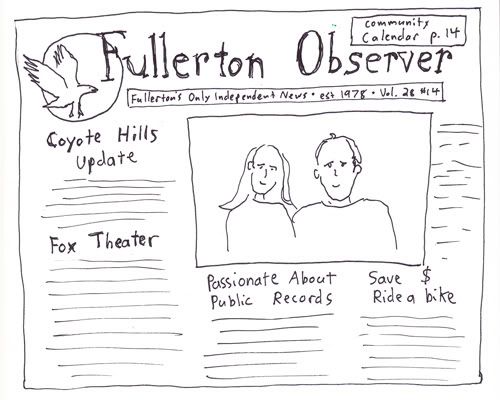 community
Calendar p. 14
Fullerton Observer
Fullerton's Only Independent News • est 1978 • Vol. 28 #14
Coyote Hills
Update
Fox Theater
Passionate About
Public Records
Save $
Ride a bike